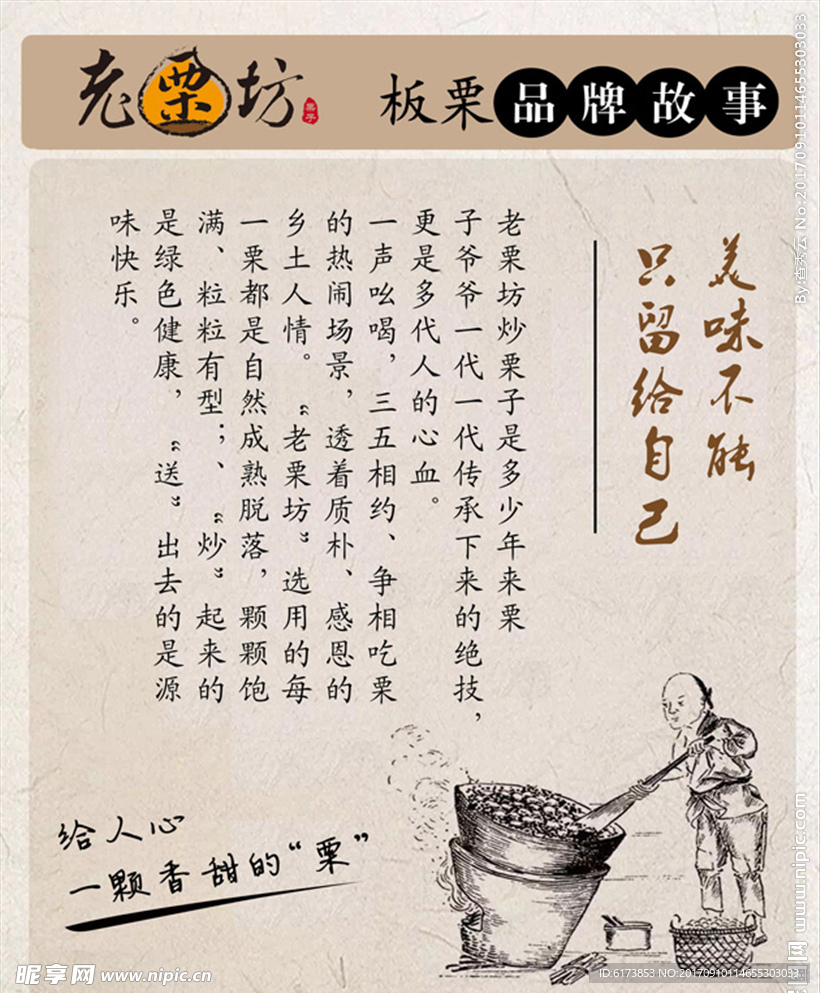 老栗坊
栗子
板栗品牌故事
美味不能
只留给自己
老栗坊炒栗子是多少年来栗
子爷爷一代一代传承下来的绝技，
更是多代人的心血。
一声吆喝，三五相约、争相吃栗
的热闹场景，透着质朴、感恩的
乡土人情。“老栗坊”选用的每
一栗都是自然成熟脱落，颗颗饱
满、粒粒有型；、“炒”起来的
是绿色健康，“送”出去的是源
味快乐。
给人心
一颗香甜的“栗”
昵享网 www.nipic.cn
ID:6173853 NO:20170910114655303033
By:首秀云 No:20170910114655303033
www.nipic.com